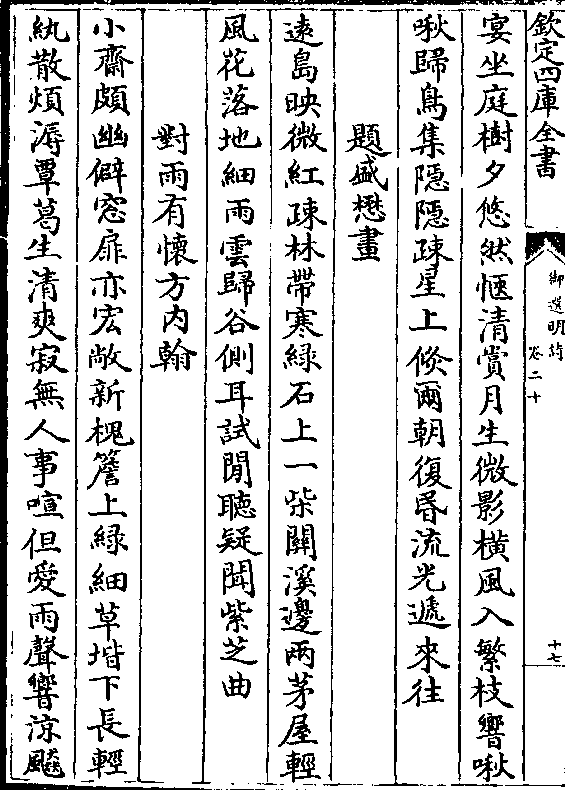 欽定四庫全書
御選明詩
卷二十
十七
宴坐庭樹夕悠然愜清賞月生微影橫風入繁枝響啾
啾歸鳥集隱隱疎星上倐爾朝復昏流光遞來往
題盛懋畫
遠島映微紅疎林帶寒綠石上一柴關溪邊兩茅屋輕
風花落地細雨雲歸谷側耳試閒聽疑聞紫芝曲
對雨有懷方内翰
小齋頗幽僻窓扉亦宏敞新槐簷上緑細草堦下長輕
紈散煩溽覃葛生清爽寂無人事喧但愛雨聲響涼飈